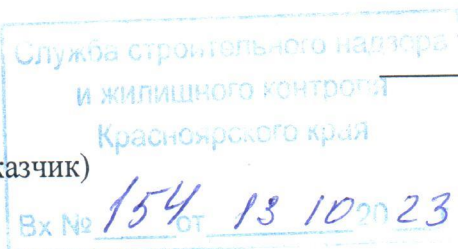 Служба строительного надзора
и жилищного контроля
Красноярского края
казчик)
Вх № 154 от 13 10 20 23